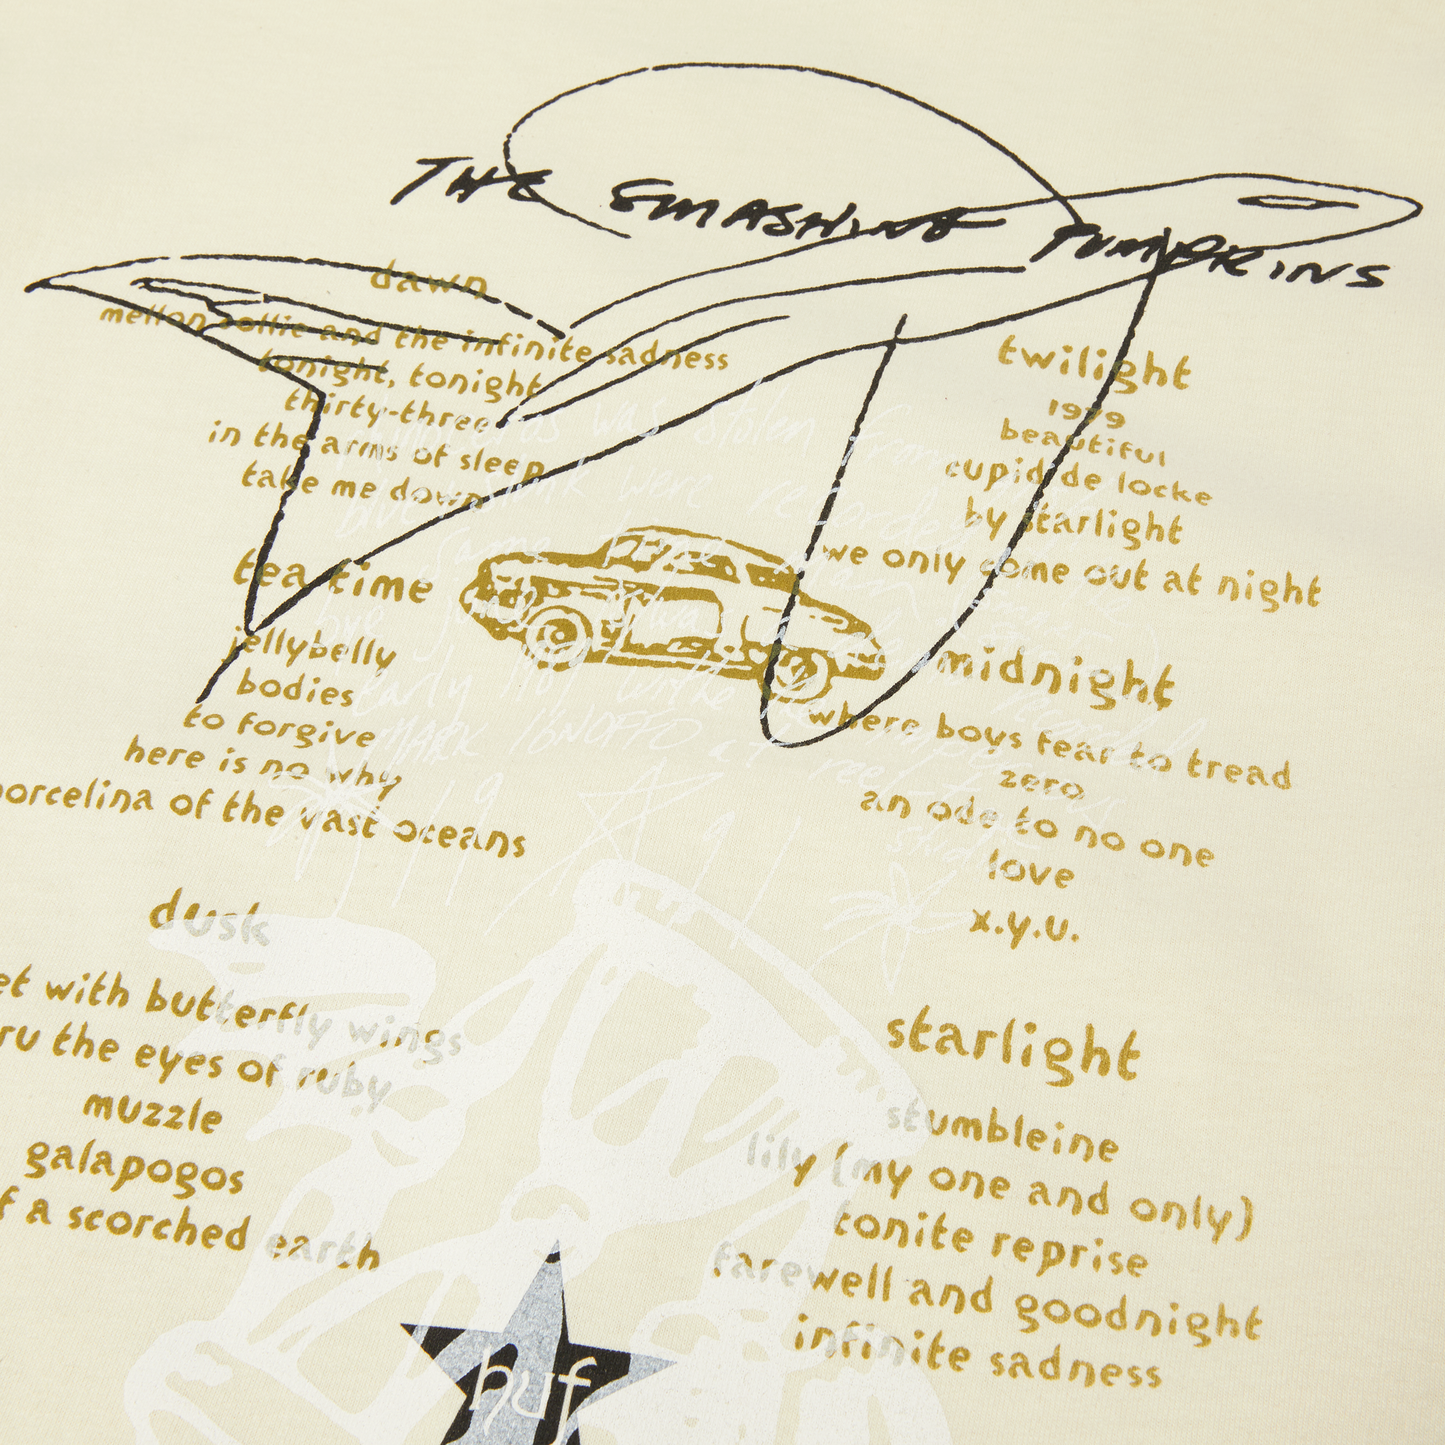 THE SMASHING PUMPKINS
dawn
mellon collie and the infinite sadness
tonight, tonight
thirty-three
in the arms of sleep
take me down
tea time
jellybelly
bodies
to forgive
here is no why
porcelina of the vast oceans
dusk
et with butterfly wings
ru the eyes of ruby
muzzle
galapogos
f a scorched earth
twilight
1979
beautiful
cupid de locke
by starlight
we only come out at night
midnight
where boys fear to tread
zero
an ode to no one
love
x.y.u.
starlight
stumbleine
lily (my one and only)
tonite reprise
farewell and goodnight
infinite sadness
was stolen from
were recorded
same time
early 1991
MARK IGNOFFO at
huf